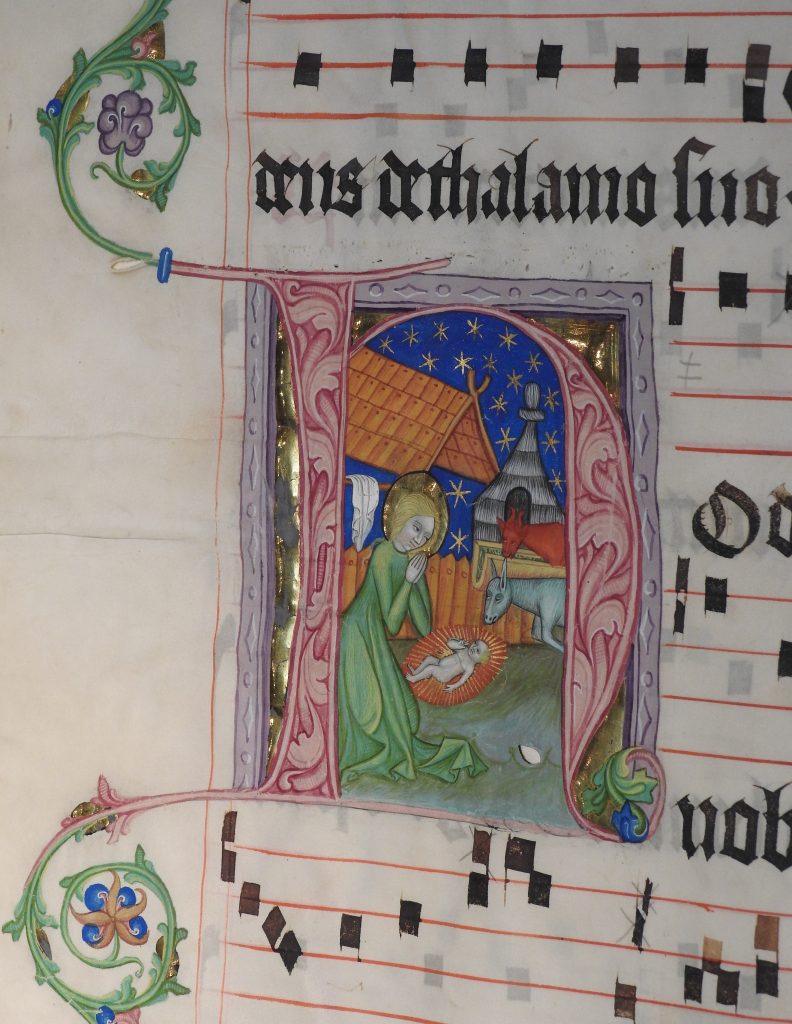 dens de thalamo suo.
HOd
nob